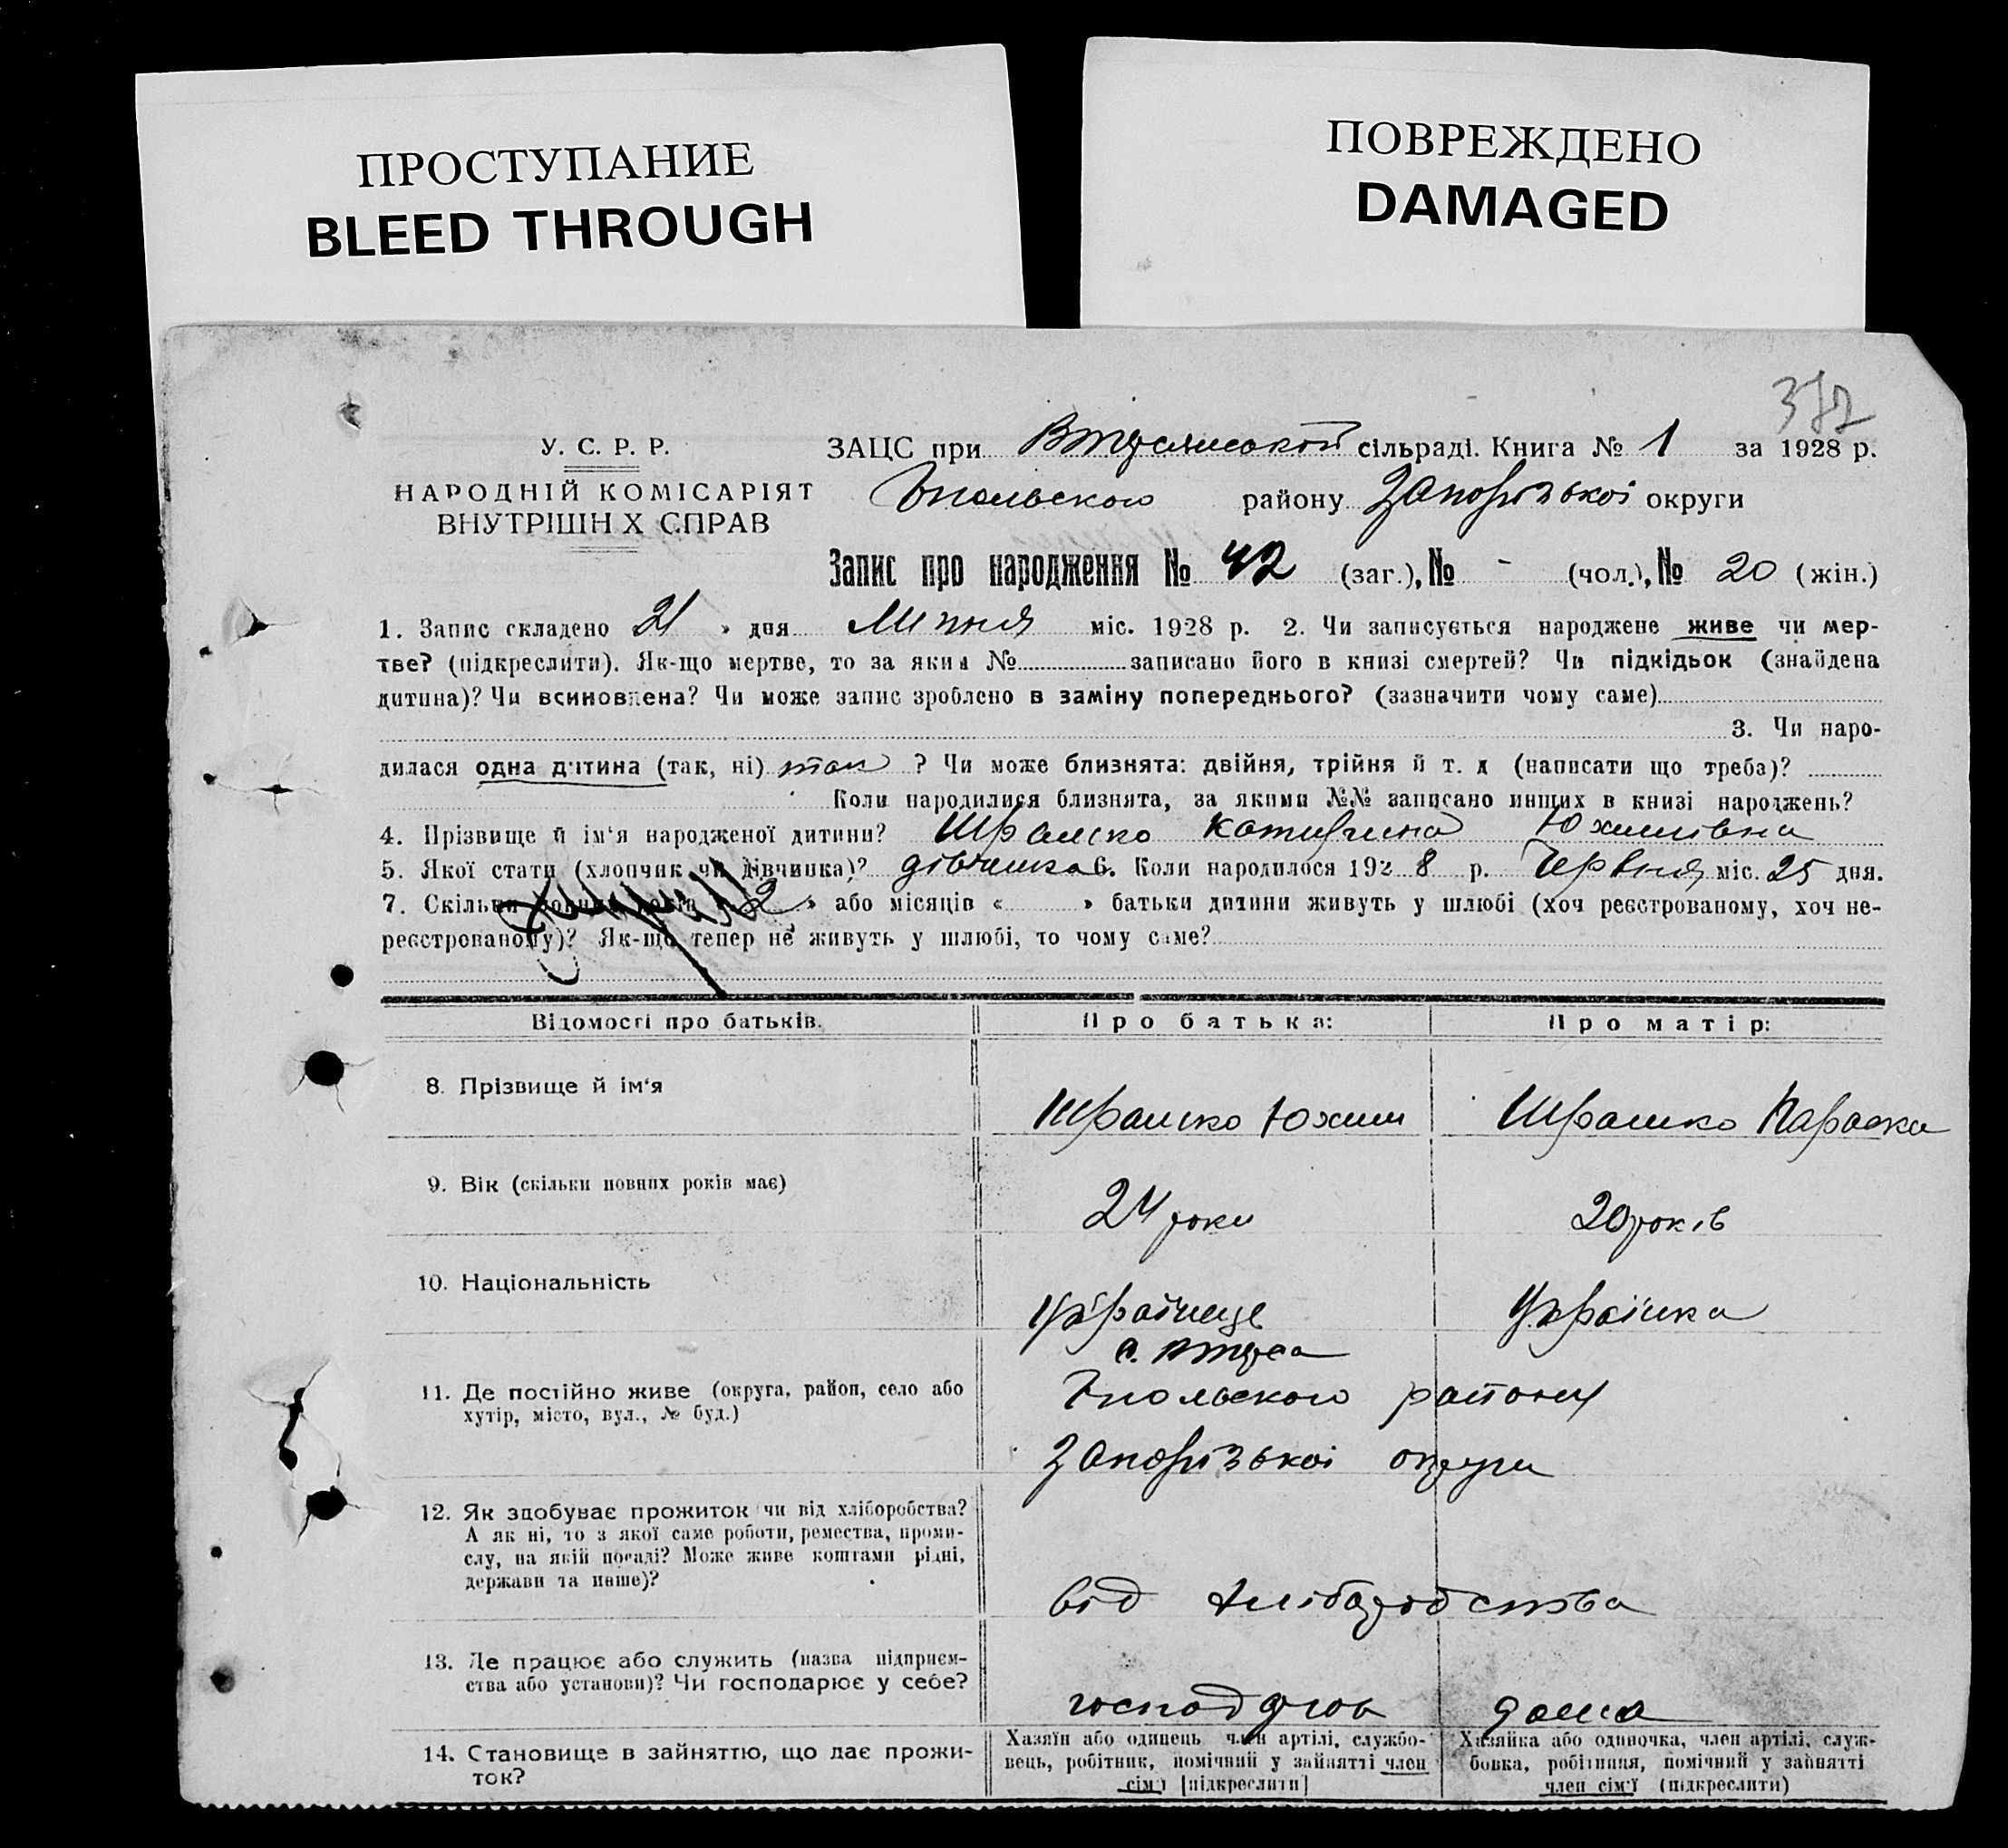 ПРОСТУПАНИЕ
BLEED THROUGH
ПОВРЕЖДЕНО
DAMAGED
У. С. Р. Р.
НАРОДНІЙ КОМІСАРІЯТ
ВНУТРІШН Х СПРАВ
ЗАЦС при сільраді. Книга № 1 за 1928 р.
району Запорізької округи
Запис про народження № 42 (заг.), № - (чол.), № 20 (жін.)
1. Запис складено 21 » дня Липня міс. 1928 р. 2. Чи записується народжене живе чи мер-
тве? (підкреслити). Як-що мертве, то за яким № записано його в книзі смертей? Чи підкідьок (знайдена
дитина)? Чи всиновлена? Чи може запис зроблено в заміну попереднього? (зазначити чому саме)
3. Чи наро-
дилася одна дитина (так, ні) так ? Чи може близнята: двійня, трійня й т. д (написати що треба)?
Коли народилися близнята, за якими №№ записано инших в книзі народжень?
4. Прізвище й ім'я народженої дитини? Шрамко Катирина Юхимівна
5. Якої стати (хлопчик чи дівчинка)? дівчинка 6. Коли народилося 192 8 р. Червня міс. 25 дня.
7. Скільки повних років 2 » або місяців « » батьки дитини живуть у шлюбі (хоч реєстрованому, хоч не-
реєстрованому)? Як-що тепер не живуть у шлюбі, то чому саме?
Відомості про батьків. Про батька: Про матір:
8. Прізвище й ім'я Шрамко Юхим Шрамко Параска
9. Вік (скільки повних років має) 24 роки 20 років
10. Національність Українець Українка
11. Де постійно живе (округа, район, село або
хутір, місто, вул., № буд.)
району
Запорізької округи
12. Як здобуває прожиток чи від хліборобства?
А як ні, то з якої саме роботи, ремества, проми-
слу, на якій посаді? Може живе коштами рідні,
держави та инше)?
від хліборобства
13. Де працює або служить (назва підприєм-
ства або установи)? Чи господарює у себе?
дома
14. Становище в зайняттю, що дає прожи-
ток?
Хазяїн або одинець член артілі, службо-
вець, робітник, помічний у зайнятті член
сім'ї [підкреслити]
Хазяйка або одиночка, член артілі, служ-
бовка, робітниця, помічний у зайнятті
член сім'ї (підкреслити)